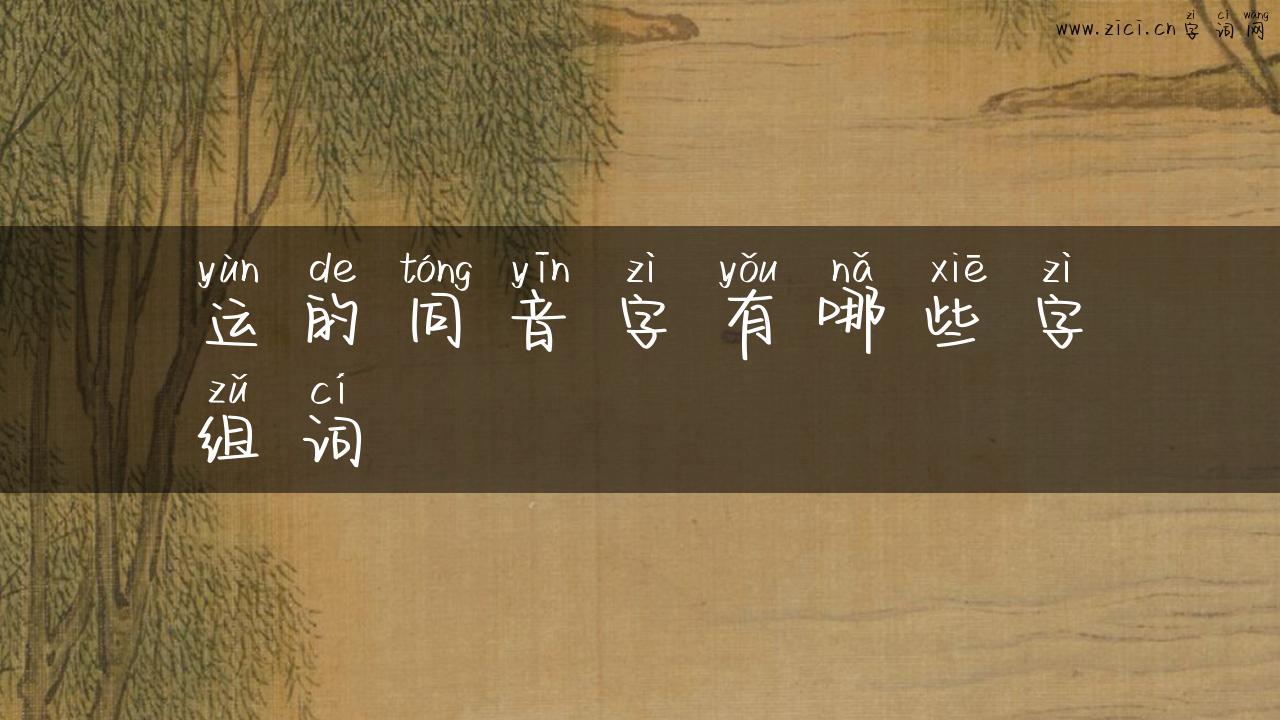 zì cí wǎng
www.zici.cn 字词网
yùn de tóng yīn zì yǒu nǎ xiē zì
运的同音字有哪些字
zǔ cí
组词